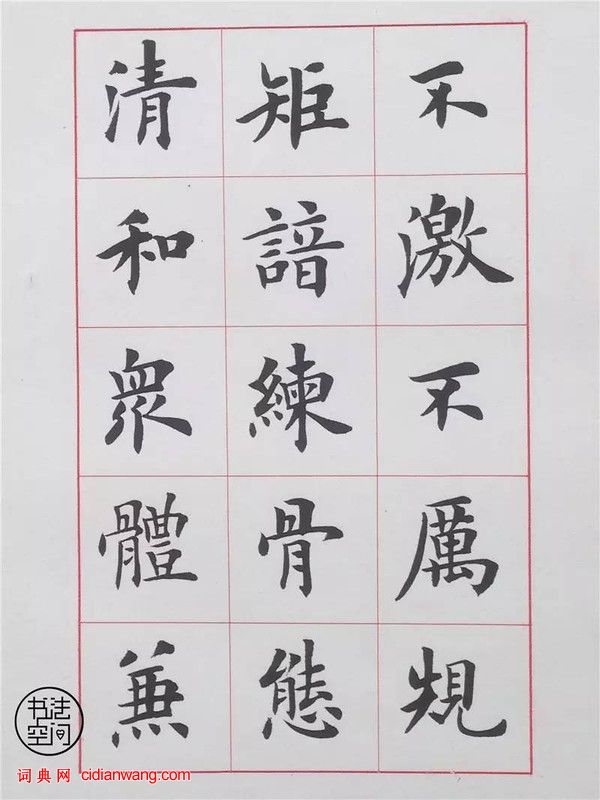 不激不厲規
矩諳練骨態
清和衆體兼
书法空间
词典网 cidianwang.com